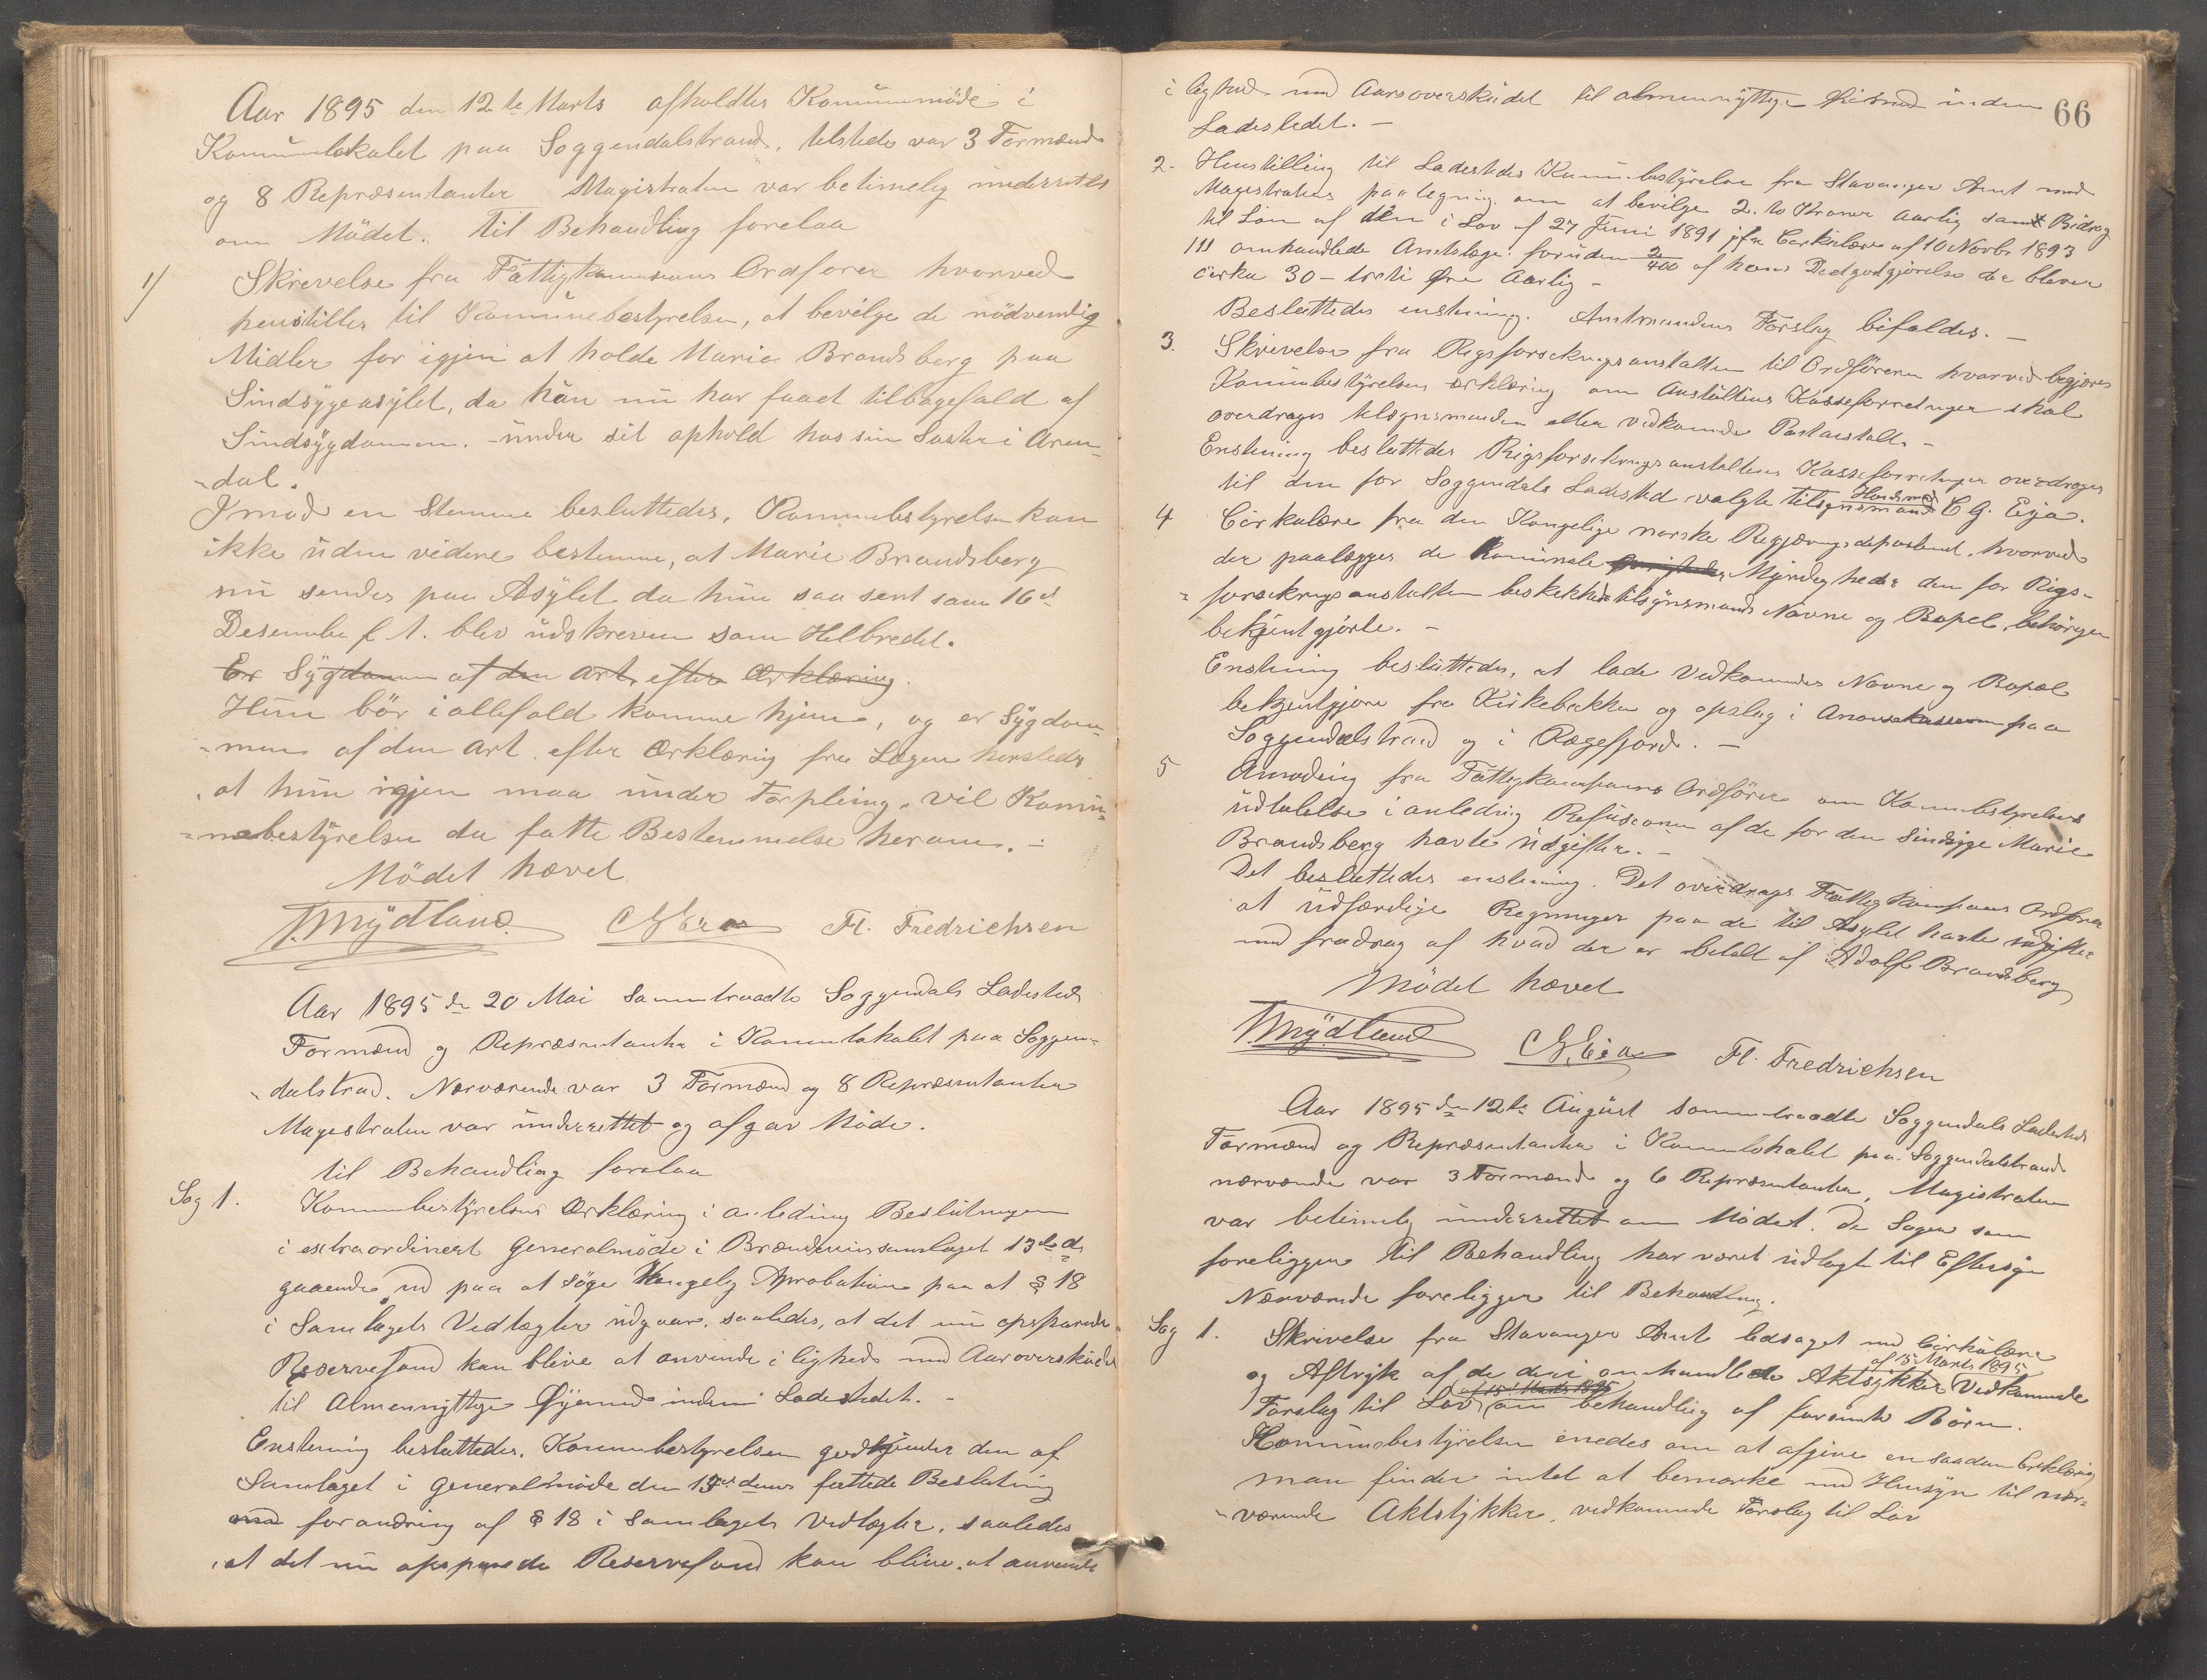 Aar 1895 den 12te Marts afholdtes Kommunemöde i
Kommunelokalet paa Soggendalstrand, tilstede var 3 Formænd
og 8 Repræsentanter Magistraten var betimelig underrettet
om Mödet. Til Behandling forelaa
1/ Skrivelse fra Fattigkommisions Ordförer hvorved
henstilles til Kommunebestyrelsen, at bevilge de nödvendig
Midler for igjen at holde Marie Brandsberg paa
Sindsygeasylet, da hun nu har faaet tilbagefald af
Sindsygdommen. – under sit ophold hos sin Söster i Aren-
-dal.
Imod en Stemme besluttedes, Kommunebestyrelsen kan
ikke uden videre bestemme, at Marie Brandsberg
nu sendes paa Asylet da hun saa sent som 16de
Desember f A. blev udskreven som Helbredet.
Er Sygdommen af den Art, efter Erklæring.
Hun bör i allefald komme hjem, og er Sygdom-
-men af den Art efter Erklæring fra Lægen hersteds
at hun igjen maa under Forpleining, vil Kommu-
-nebestyrelsen da fatte Bestemmelse herom. –
Mödet hævet
T. Mydland CG Eia Fl. Fredrichsen
Aar 1895 den 20 Mai Sammentraadte Soggendals Ladesteds
Formænd og Repræsentanter i Kommunelokalet paa Soggen-
-dalstrand. Nærværende var 3 Formænd og 8 Repræsentanter
Magistraten var underrettet og afgav Möde.
til Behandling forelaa
Sag 1. Kommunebestyrelsens Erklæring i anledning Beslutningen
i extraordinert Generalmöde i Brændevinssamlaget 13de ds
gaaende ud paa at söge Kongelig Aprobation paa at § 18
i Samlagets Vedtægter udgaar, saaledes, at det nu opsparede
Reservefond kan blive at anvende i lighed med Aarsoverskudet
til Almennyttige Öjemed inden Ladestedet. –
Enstemmig besluttedes. Kommunebestyrelsen godkjender den af
Samlaget i Generalmöde den 13de dennes fattede Beslutning
med forandring af § 18 i Samlagets Vedtægter, saaledes
at det nu opsparede Reservefond kan blive at anvende
66
i lighed med Aarsoverskudet til almennyttige Öiemed inden
Ladestedet. –
2. Henstilling til Ladestedes Kommunebestyrelse fra Stavanger Amt med
Magistratens paategning om at bevilge 2. to Kroner aarlig samt Bidrag
til Lön af den i Lov af 27 Juni 1891 jfr Cirkulære af 10 Novbr 1893
111 omhandlede Amtslæge foruden 2/400 af hans Diætgodtgjörelse der bliver
cirka 30 – treti Øre aarlig –
Besluttedes enstemmig. Amtmandens Forslag bifaldes. –
3. Skrivelse fra Rigsforsikringsanstalten til Ordföreren hvorved begjæres
Kommunebestyrelsens erklæring om Anstaltens Kasseforretninger skal
overdrages tilsynsmanden eller vedkommende Postanstalt. –
Enstemmig besluttedes Rigsforsikringsanstaltens Kasseforretninger overdrages
til den for Soggendals Ladested valgte tilsynsmand Handelsmand C G. Eja.
4 Cirkulære fra den Kongelige norske Regjeringsdepartement, hvorved
der paalægges de Kommunale Myndigheder den for Rigs-
-forsikringsanstalten beskikkede tilsynsmands Navne og Bopel, behörigen
bekjentgjorte. –
Enstemmig besluttedes, at lade Vedkommendes Navne og Bopæl
bekjentgjöre fra Kirkebakken og opslag i paa
Soggendalstrand og i Rægefjord. –
5 Anmodning fra Fattigkommisionens Ordförer om Kommunebestyrelsens
udtalelse i anledning Refusionen af de for den Sindsyge Marie
Brandsberg havte udgifter. –
Det besluttedes enstemmig. Det overdrages Fattigkommisions Ordförer
at udfærdige Regninger paa de til Asylet havte udgifter
med fradrag af hvad der er betalt af Adolf Brandsberg
Mödet hævet
T. Mydland CG Eia Fl. Fredrichsen
Aar 1895 den 12te August sammentraadte Soggendals Ladesteds
Formænd og Repræsentanter i Kommunelokalet paa Soggendalstrand
nærværende var 3 Formænd og 6 Repræsentanter, Magistraten
var betimelig underrettet om Mödet. De Sager som
foreligger til Behandling har været udlagt til Eftersyn
Nærværende foreligger til Behandling.
Sag 1. Skrivelse fra Stavanger Amt ledsaget med Cirkulære
af 15 Marts 1895
og Aftryk af de deri omhandlede Aktstykker Vedkommende
af 15 Marts 1895
Forslag til Lov om behandling af forsömte Börn.
Kommunebestyrelsen enedes om at afgive en saadan Erklæring
man finder intet at bemærke med Hensyn til nær-
-værende Aktstykker, vedkommende Forslag til Lov